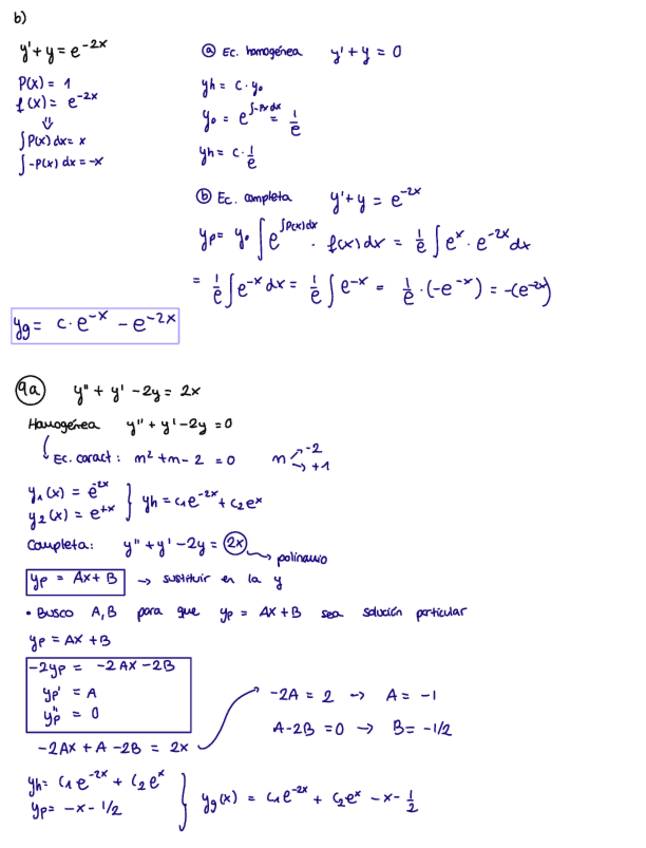 b)
y' + y = e^{-2x}
P(x) = 1
f(x) = e^{-2x}
⇓
∫P(x) dx = x
∫-P(x) dx = -x
ⓐ Ec. homogénea y' + y = 0
yh = c · y₀
y₀ = e^{∫-P(x)dx} = 1/e
yh = c · 1/e
ⓑ Ec. completa y' + y = e^{-2x}
yp = y₀ ∫ e^{∫P(x)dx} · f(x) dx = 1/e ∫ e^x · e^{-2x} dx
= 1/e ∫ e^{-x} dx = 1/e ∫ e^{-x} = 1/e · (-e^{-x}) = -(e^{-2x})
yg = c · e^{-x} - e^{-2x}
9a y'' + y' - 2y = 2x
Homogénea y'' + y' - 2y = 0
Ec. caract: m² + m - 2 = 0 m -2
+1
y₁(x) = e^{-2x}
y₂(x) = e^{+x} } yh = c₁e^{-2x} + c₂e^x
Completa: y'' + y' - 2y = 2x → polinomio
yp = Ax + B → sustituir en la y
• Busco A, B para que yp = Ax + B sea solución particular
yp = Ax + B
-2yp = -2Ax - 2B
yp' = A
yp'' = 0
-2Ax + A - 2B = 2x
-2A = 2 → A = -1
A - 2B = 0 → B = -1/2
yh = c₁e^{-2x} + c₂e^x
yp = -x - 1/2 } yg(x) = c₁e^{-2x} + c₂e^x - x - 1/2